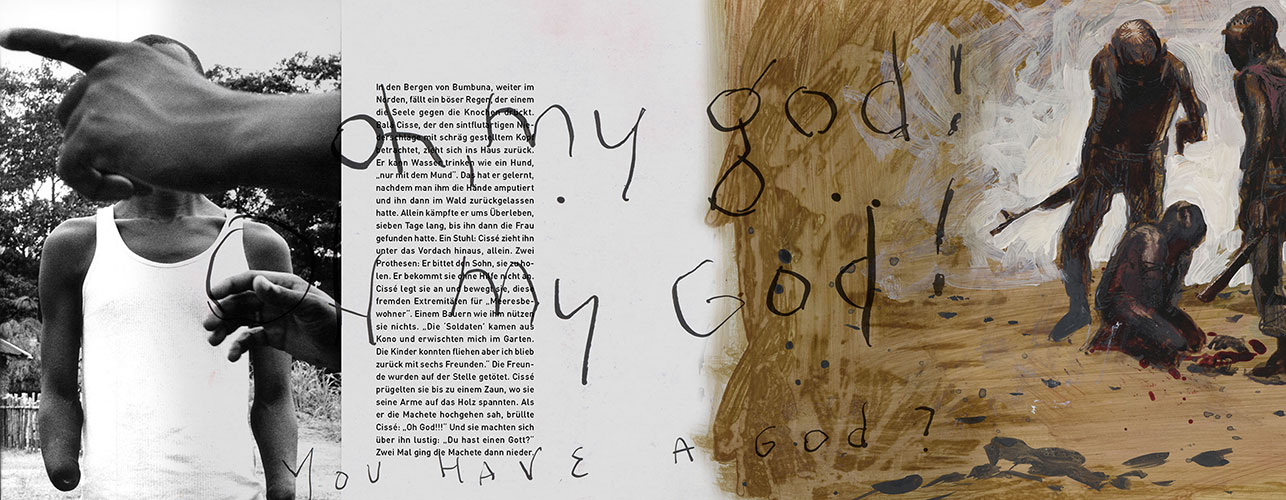 In den Bergen von Bumbuna, weiter im
Norden, fällt ein böser Regen, der einem
die Seele gegen die Knochen drückt.
Bala Cisse, der den sintflutartigen Nie-
derschläge mit schräg gestelltem Kopf
betrachtet, zieht sich ins Haus zurück.
Er kann Wasser trinken wie ein Hund,
„nur mit dem Mund“. Das hat er gelernt,
nachdem man ihm die Hände amputiert
und ihn dann im Wald zurückgelassen
hatte. Allein kämpfte er ums Überleben,
sieben Tage lang, bis ihn dann die Frau
gefunden hatte. Ein Stuhl: Cissé zieht ihn
unter das Vordach hinaus, allein. Zwei
Prothesen: Er bittet den Sohn, sie zu ho-
len. Er bekommt sie ohne Hilfe nicht an.
Cissé legt sie an und bewegt sie, diese
fremden Extremitäten für „Meeresbe-
wohner“. Einem Bauern wie ihm nützen
sie nichts. „Die ‘Soldaten’ kamen aus
Kono und erwischten mich im Garten.
Die Kinder konnten fliehen aber ich blieb
zurück mit sechs Freunden.“ Die Freun-
de wurden auf der Stelle getötet. Cissé
prügelten sie bis zu einem Zaun, wo sie
seine Arme auf das Holz spannten. Als
er die Machete hochgehen sah, brüllte
Cissé: „Oh God!!!“ Und sie machten sich
über ihn lustig: „Du hast einen Gott?“
Zwei Mal ging die Machete dann nieder.
oh, my god!
Oh my God!
YOU HAVE A GOD?